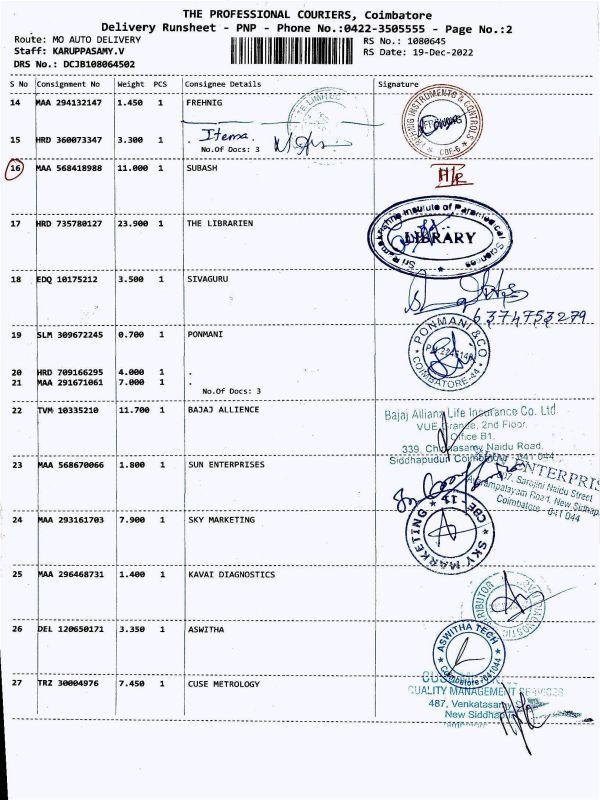 THE PROFESSIONAL COURIERS, Coimbatore
Delivery Runsheet - PNP - Phone No.:0422-3505555 - Page No.:2
Route: MO AUTO DELIVERY
Staff: KARUPPASAMY.V
DRS No.: DCJB108064502
RS No.: 1080645
RS Date: 19-Dec-2022
S No Consignment No Weight PCS Consignee Details Signature
14 MAA 294132147 1.450 1 FREHNIG
15 HRD 360073347 3.300 1 Items.
No.Of Docs: 3
INSTRUMENTS & CONTROLS
CBE-6
16 MAA 568418988 11.000 1 SUBASH
17 HRD 735780127 23.900 1 THE LIBRARIEN
Sri Ramakrishna Institute of Paramedical Sciences
LIBRARY
18 EDQ 10175212 3.500 1 SIVAGURU
6374753279
19 SLM 309672245 0.700 1 PONMANI
PONMANI & CO
COIMBATORE-44
20 HRD 709166295 4.000 1 .
21 MAA 291671061 7.000 1 .
No.Of Docs: 3
22 TVM 10335210 11.700 1 BAJAJ ALLIENCE
Bajaj Allianz Life Insurance Co. Ltd.
VUE Grande, 2nd Floor,
Office B1,
339, Chinnasamy Naidu Road,
Siddhapudur Coimbatore - 641 044
23 MAA 568670066 1.800 1 SUN ENTERPRISES
ENTERPRIS
Sarojini Naidu Street
Road, New Sidhap
Coimbatore - 641 044
24 MAA 293161703 7.900 1 SKY MARKETING
SKY MARKETING
CBE-12
25 MAA 296468731 1.400 1 KAVAI DIAGNOSTICS
26 DEL 120650171 3.350 1 ASWITHA
ASWITHA TECH
Coimbatore-641044
27 TRZ 30004976 7.450 1 CUSE METROLOGY
QUALITY MANAGEMENT SERVICES
487, Venkatasamy
New Siddha